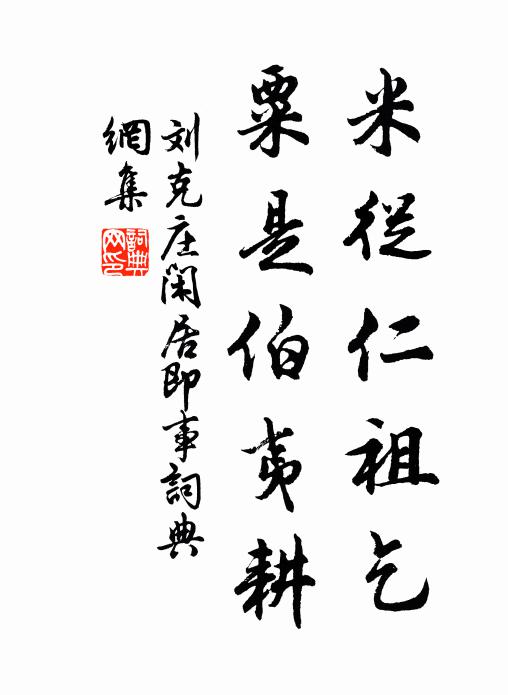 米從仁祖乞
粟是伯夷耕
刘克庄闲居即事詞典
網集
詞典网印